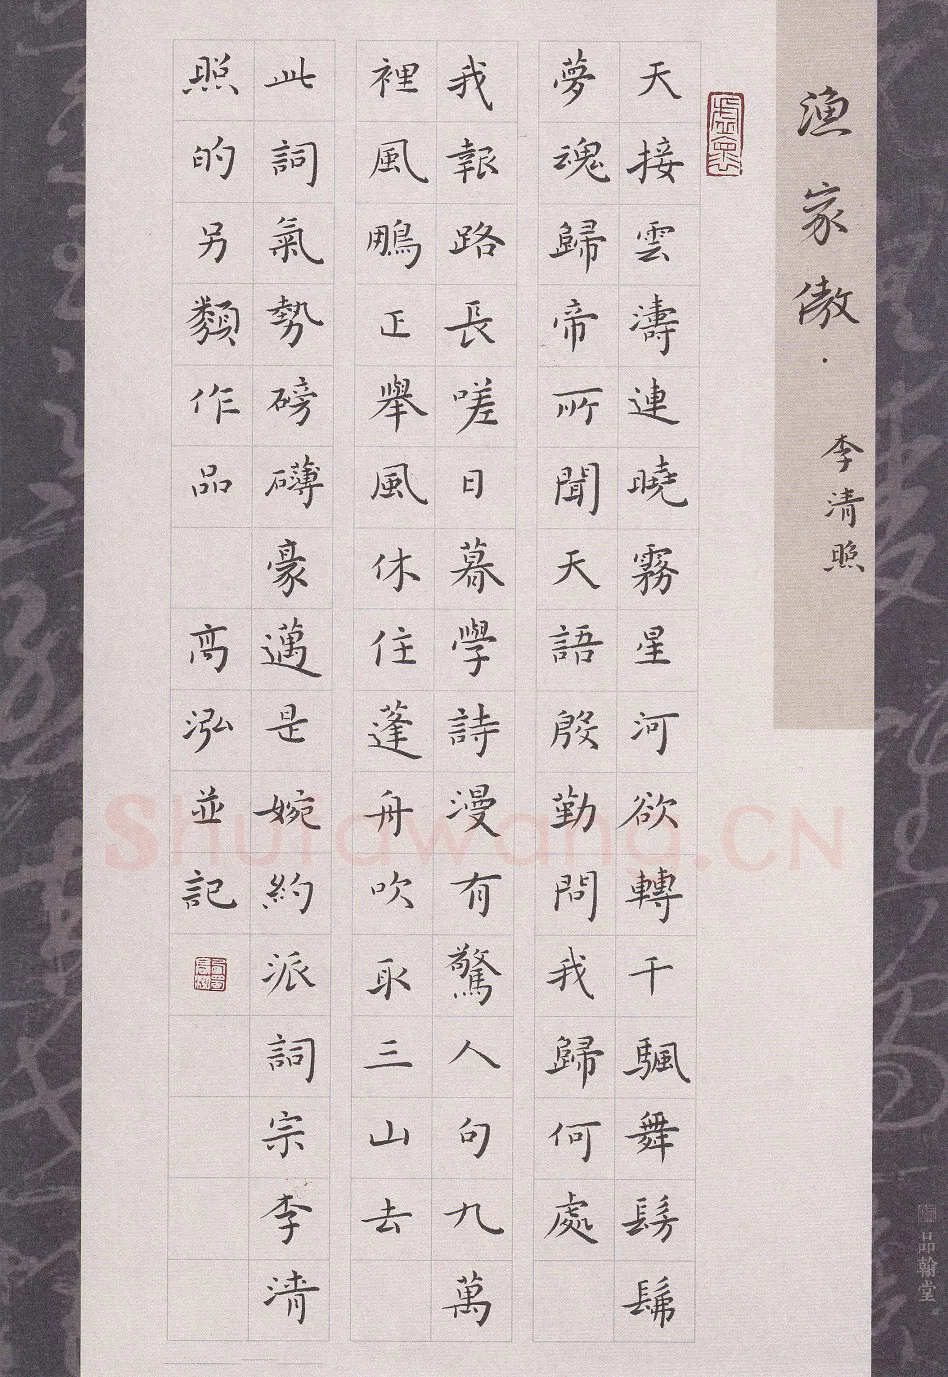 漁家傲·
李清照
天接雲濤連曉霧星河欲轉千颿舞髣髴
夢魂歸帝所聞天語殷勤問我歸何處
我報路長嗟日暮學詩漫有驚人句九萬
裡風鵬正舉風休住蓬舟吹取三山去
此詞氣勢磅礴豪邁是婉約派詞宗李清
照的另類作品 高泓並記
Shufawang.CN
品翰堂